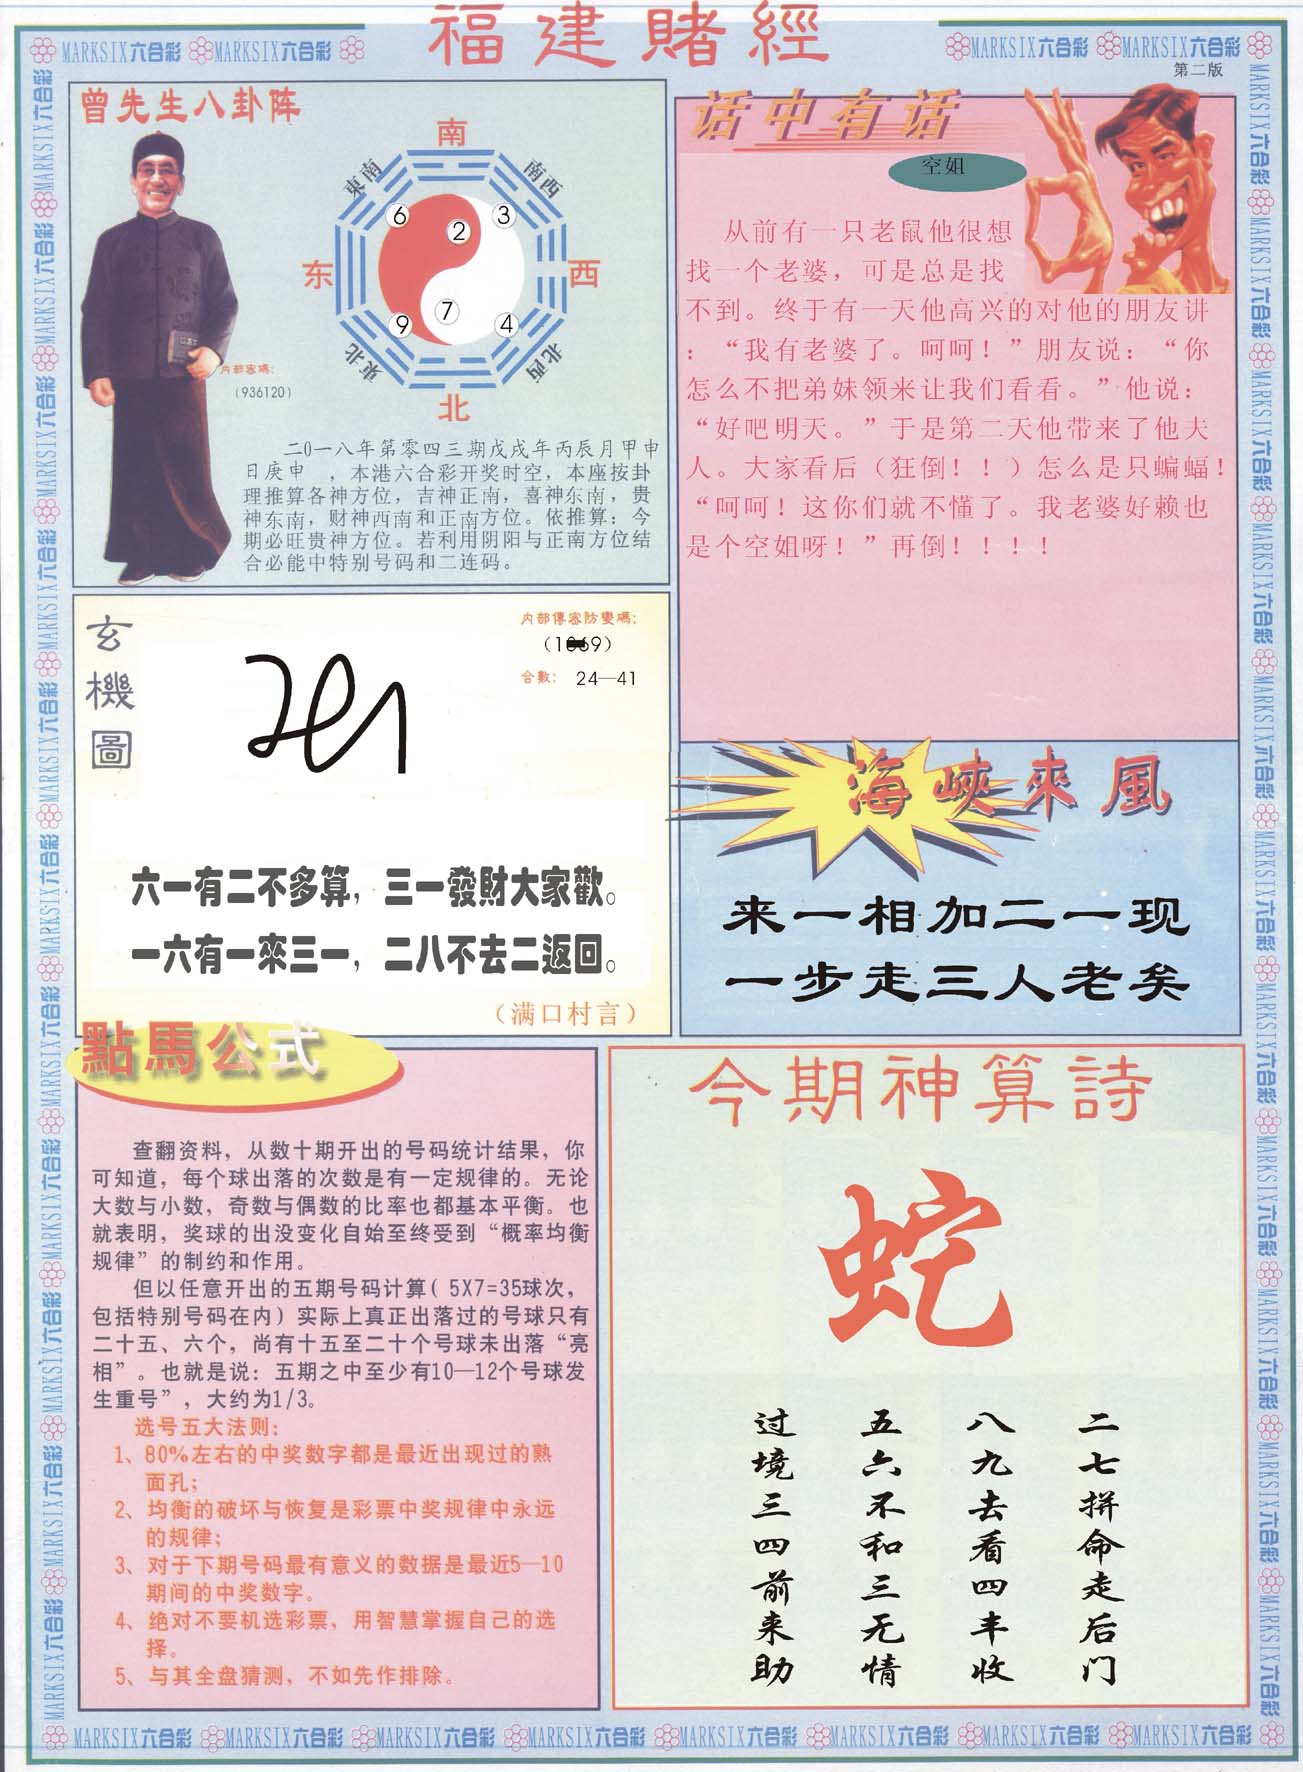 福建賭經
MARKSIX六合彩 MARKSIX六合彩
MARKSIX六合彩 MARKSIX六合彩
第二版
曾先生八卦阵
南
東南
南西
6
2
3
东
西
7
9
4
東北
北西
北
内部密碼：
（936120）
二0一八年第零四三期戊戌年丙辰月甲申
日庚申　，本港六合彩开奖时空，本座按卦
理推算各神方位，吉神正南，喜神东南，贵
神东南，财神西南和正南方位。依推算：今
期必旺贵神方位。若利用阴阳与正南方位结
合必能中特别号码和二连码。
话中有话
空姐
从前有一只老鼠他很想
找一个老婆，可是总是找
不到。终于有一天他高兴的对他的朋友讲
：“我有老婆了。呵呵！”朋友说：“你
怎么不把弟妹领来让我们看看。”他说：
“好吧明天。”于是第二天他带来了他夫
人。大家看后（狂倒！！）怎么是只蝙蝠！
“呵呵！这你们就不懂了。我老婆好赖也
是个空姐呀！”再倒！！！！
玄機圖
内部傳密防變碼：
合數： 24—41
六一有二不多算，三一發財大家歡。
一六有一來三一，二八不去二返回。
（满口村言）
海峽來風
来一相加二一现
一步走三人老矣
點馬公式
查翻资料，从数十期开出的号码统计结果，你
可知道，每个球出落的次数是有一定规律的。无论
大数与小数，奇数与偶数的比率也都基本平衡。也
就表明，奖球的出没变化自始至终受到“概率均衡
规律”的制约和作用。
但以任意开出的五期号码计算（5X7=35球次，
包括特别号码在内）实际上真正出落过的号球只有
二十五、六个，尚有十五至二十个号球未出落“亮
相”。也就是说：五期之中至少有10—12个号球发
生重号”，大约为1/3。
选号五大法则：
1、80%左右的中奖数字都是最近出现过的熟
面孔；
2、均衡的破坏与恢复是彩票中奖规律中永远
的规律；
3、对于下期号码最有意义的数据是最近5—10
期间的中奖数字。
4、绝对不要机选彩票，用智慧掌握自己的选
择。
5、与其全盘猜测，不如先作排除。
今期神算詩
蛇
二七拼命走后门
八九去看四丰收
五六不和三无情
过境三四前来助
MARKSIX六合彩 MARKSIX六合彩 MARKSIX六合彩 MARKSIX六合彩 MARKSIX六合彩 MARKSIX六合彩 MARKSIX六合彩 MARKSIX六合彩